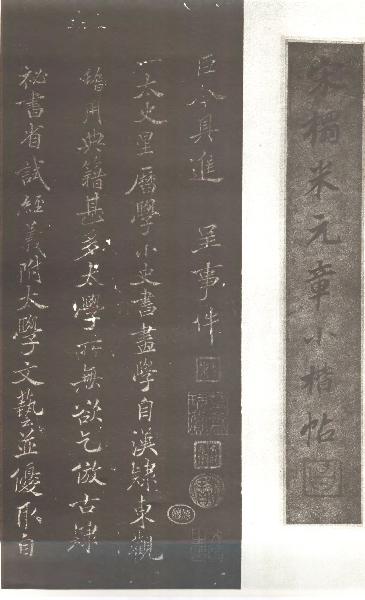 宋搨米元章小楷帖
臣今具進呈事件
一太史星曆學小史書畫學自漢隸東觀
籍用典籍甚多太學所無欲乞倣古隸
祕書省試經義附太學文藝並優取自